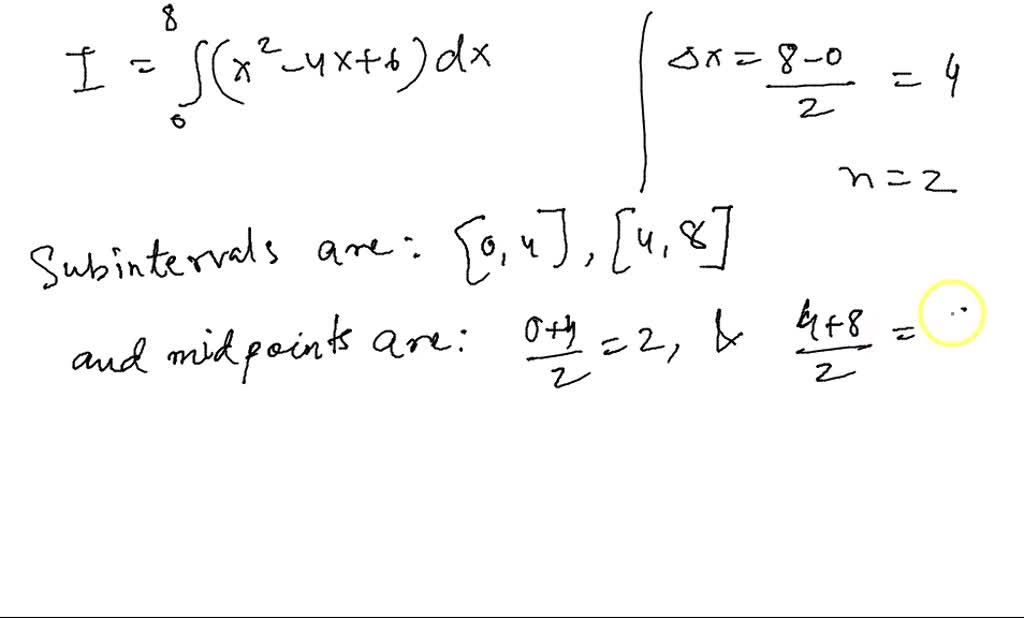 I = ∫₀⁸ (x² - 4x + 6) dx
Δx = (8 - 0)/2 = 4
n = 2
Subintervals are: [0, 4], [4, 8]
and midpoints are: (0+4)/2 = 2, & (4+8)/2 =